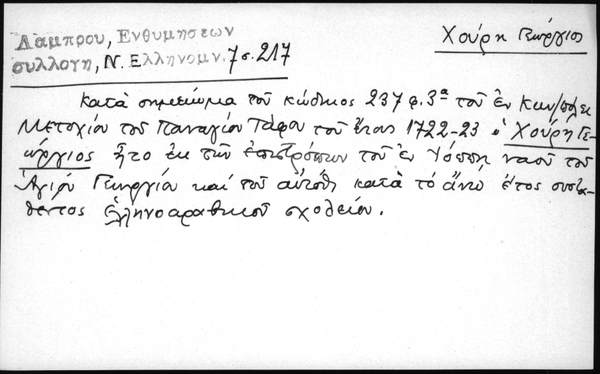 Χούρη Γεώργιος
Λαμπρου, Ενθυμησεων
συλλογη, Ν. Ελληνομν. 7 σ. 217
Κατὰ σημείωμα τοῦ κώδικος 237 φ. 3α τοῦ ἐν Κων/πόλει
Μετοχίου τοῦ Παναγίου Τάφου τοῦ ἔτους 1722-23 ὁ Χούρη Γε-
ώργιος ἦτο ἐκ τῶν ἐπιτρόπων τοῦ ἐν Ἰόππῃ ναοῦ τοῦ
Ἁγίου Γεωργίου καὶ τοῦ αὐτόθι κατὰ τὸ ἄνω ἔτος συστα-
θέντος ἑλληνοαραβικοῦ σχολείου.